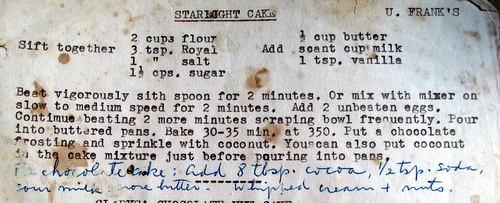 STARLIGHT CAKE U. FRANK'S
2 cups flour ½ cup butter
Sift together 3 tsp. Royal Add scant cup milk
1 " salt 1 tsp. vanilla
1½ cps. sugar
Beat vigorously sith spoon for 2 minutes. Or mix with mixer on
slow to medium speed for 2 minutes. Add 2 unbeaten eggs.
Continue beating 2 more minutes scraping bowl frequently. Pour
into buttered pans. Bake 30-35 min. at 350. Put a chocolate
frosting and sprinkle with coconut. Youcan also put coconut
in the cake mixture just before pouring into pans.
chocolate cake: add 8 tbsp. cocoa, 1/2 tsp. soda,
sour milk. more butter. Whipped cream + nuts.
CHOCOLATE CAKE